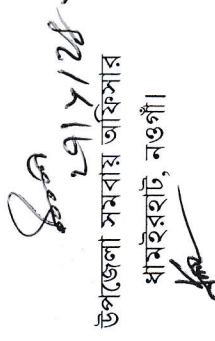 ২৭/৮/২৪
উপজেলা সমবায় অফিসার
ধামইরহাট, নওগাঁ।